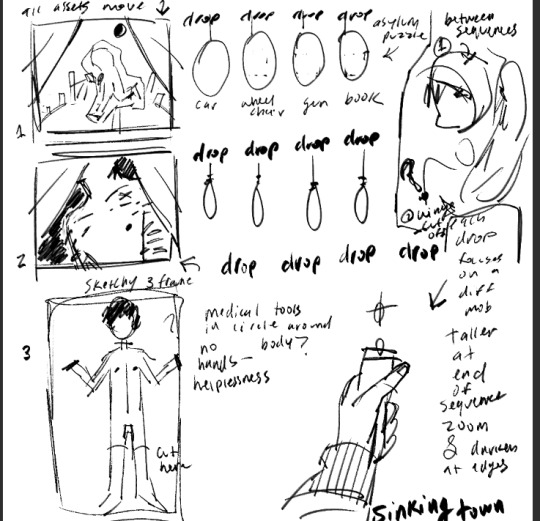 all assets move
drop drop drop drop
asylum
puzzle
between
sequences
1
car
wheel
chair
gun
book
1
drop drop drop drop
2
wings
cut
off
2
drop drop drop drop
each
drop
focuses
on a
diff
mob
taller
at
end
of
sequence
zoom
& darkens
at edges
sketchy 3 frame
3
medical tools
in circle around
no body?
hands—
helplessness
cut
here
sinking town